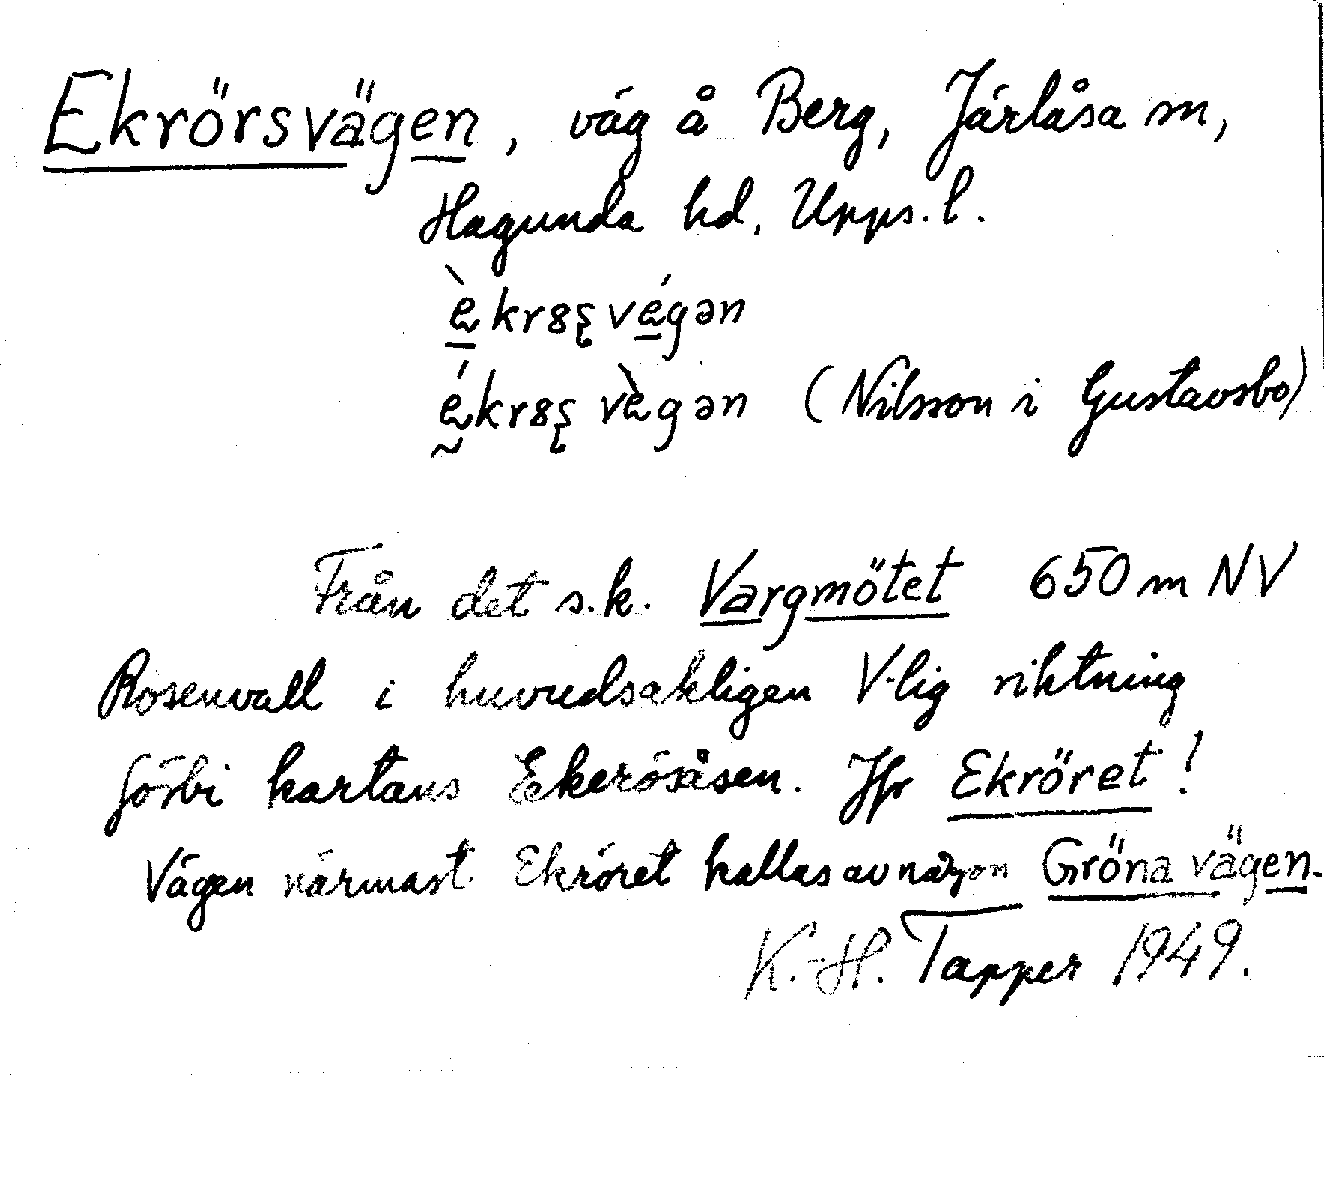 Ekrörsvägen, väg å Berg, Järlåsa sn,
Hagunda hd, Upps. l.
(Nilsson i Gustavsbo)
Från det s.k. Vargmötet 650 m NV
Rosenvall i huvudsakligen V-lig riktning
förbi kartans Ekerösåsen. Jfr Ekröret!
Vägen närmast Ekröret kallas av någon Gröna vägen.
K.-H. Tapper 1949.